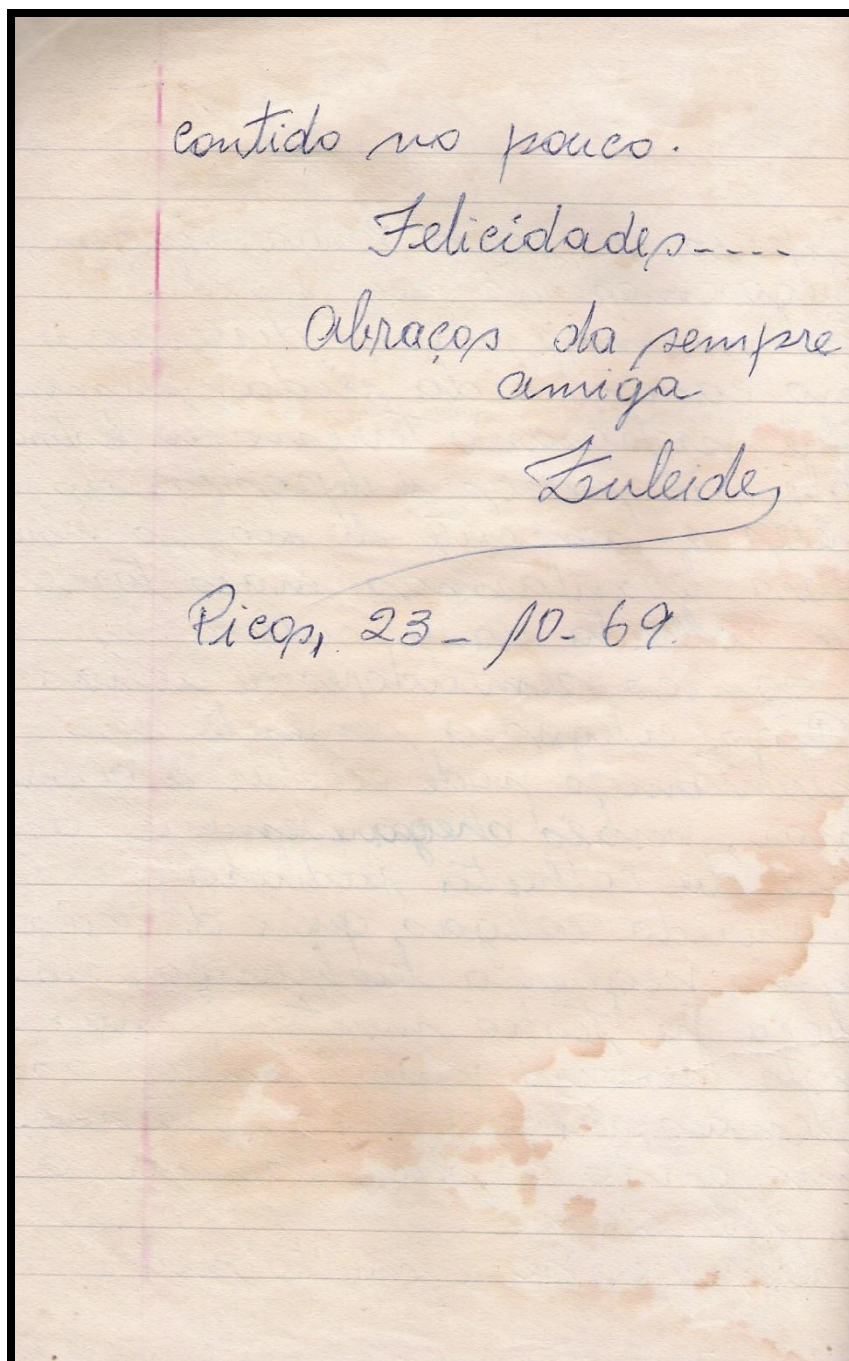 contido no pouco.
Felicidades----
Abraços da sempre
amiga
Zuleide
Picos, 23-10-69.